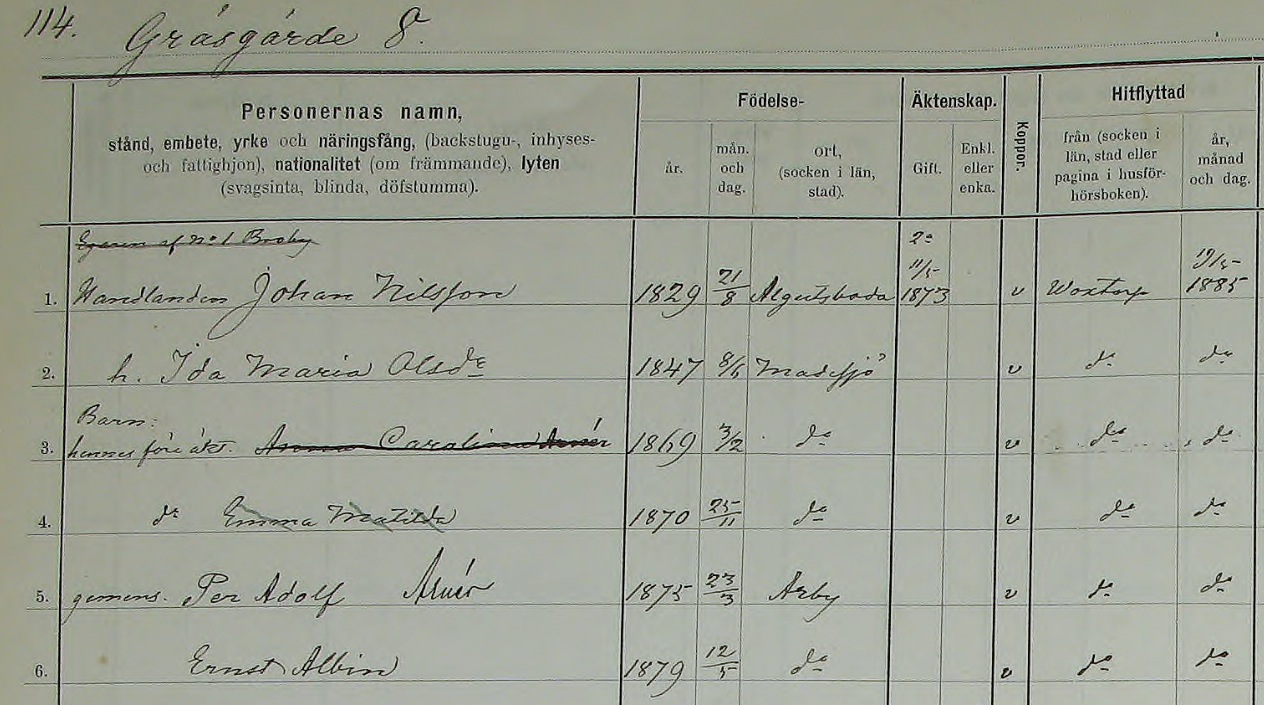 114. Gräsgärde 8.
Personernas namn,
stånd, embete, yrke och näringsfång, (backstugu-, inhyses-
och fattighjon), nationalitet (om främmande), lyten
(svagsinta, blinda, döfstumma).
Födelse-
år.
mån.
och
dag.
ort,
(socken i län,
stad).
Äktenskap.
Gift.
Enkl.
eller
enka.
Koppor.
Hitflyttad
från (socken i
län, stad eller
pagina i husför-
hörsboken).
år,
månad
och dag.
Egaren af No 1 Broby
1. Handlanden Johan Nilsson 1829 21/8 Algutsboda 2a 11/5 1873 v Woxtorp 19/5 1885
2. h. Ida Maria Olsdr 1847 8/5 Madesjö v do do
Barn:
3. hennes före äkt. Anna Carolina Arnér 1869 3/2 do v do do
4. do Emma Matilda 1870 25/11 do v do do
5. gemens. Per Adolf Arnér 1875 23/3 Arby v do do
6. Ernst Albin 1879 12/5 do v do do